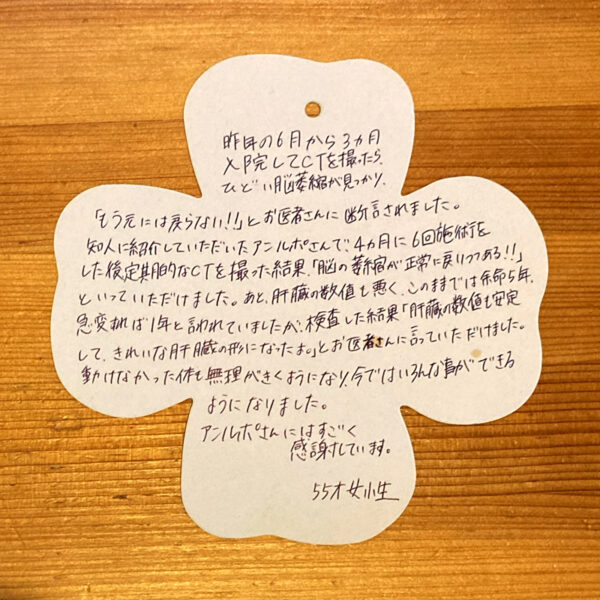 昨年の6月から3ヵ月
入院してCTを撮ったら、
ひどい脳萎縮が見つかり、
「もう元には戻らない!!」とお医者さんに断言されました。
知人に紹介していただいたアンルポさんで、4ヵ月に6回施術を
した後定期的なCTを撮った結果、「脳の萎縮が正常に戻りつつある!!」
といっていただけました。あと、肝臓の数値も悪く、このままでは余命5年、
急変すれば1年と言われていましたが、検査した結果「肝臓の数値も安定
して、きれいな肝臓の形になったよ。」とお医者さんに言っていただけました。
動けなかった体も無理がきくようになり、今ではいろんな事ができる
ようになりました。
アンルポさんにはすごく
感謝しています。
55才女性